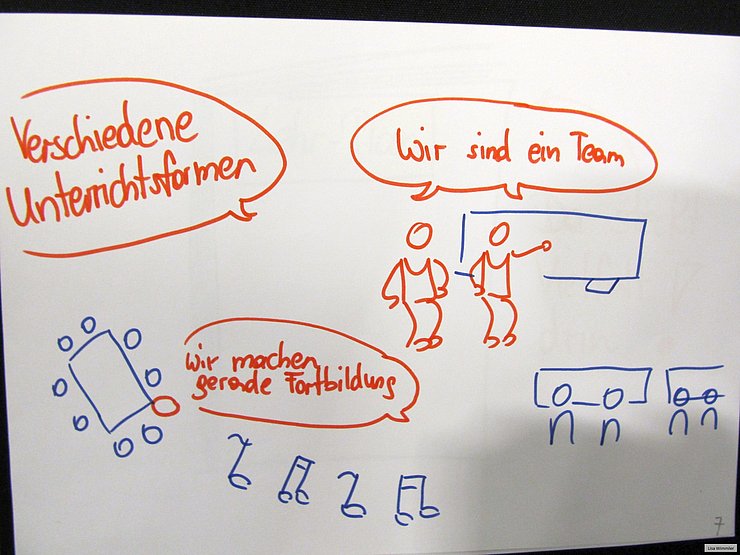 Verschiedene
Unterrichtsformen
Wir sind ein Team
wir machen
gerade Fortbildung
7
Lisa Wimmler